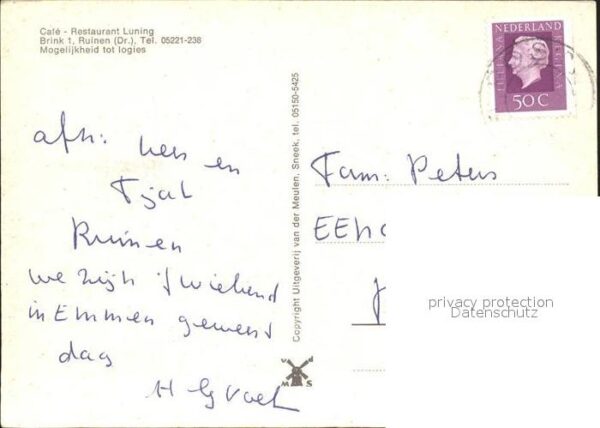 Café - Restaurant Luning
Brink 1, Ruinen (Dr.), Tel. 05221-238
Mogelijkheid tot logies
afz: en
Ruinen
we zijn 't wiekend
in Emmen geweest
dag
H
Copyright Uitgeverij van der Meulen, Sneek, tel. 05150-5425
v d
M S
NEDERLAND
JULIANA REGINA
50 C
Fam: Peters
privacy protection
Datenschutz